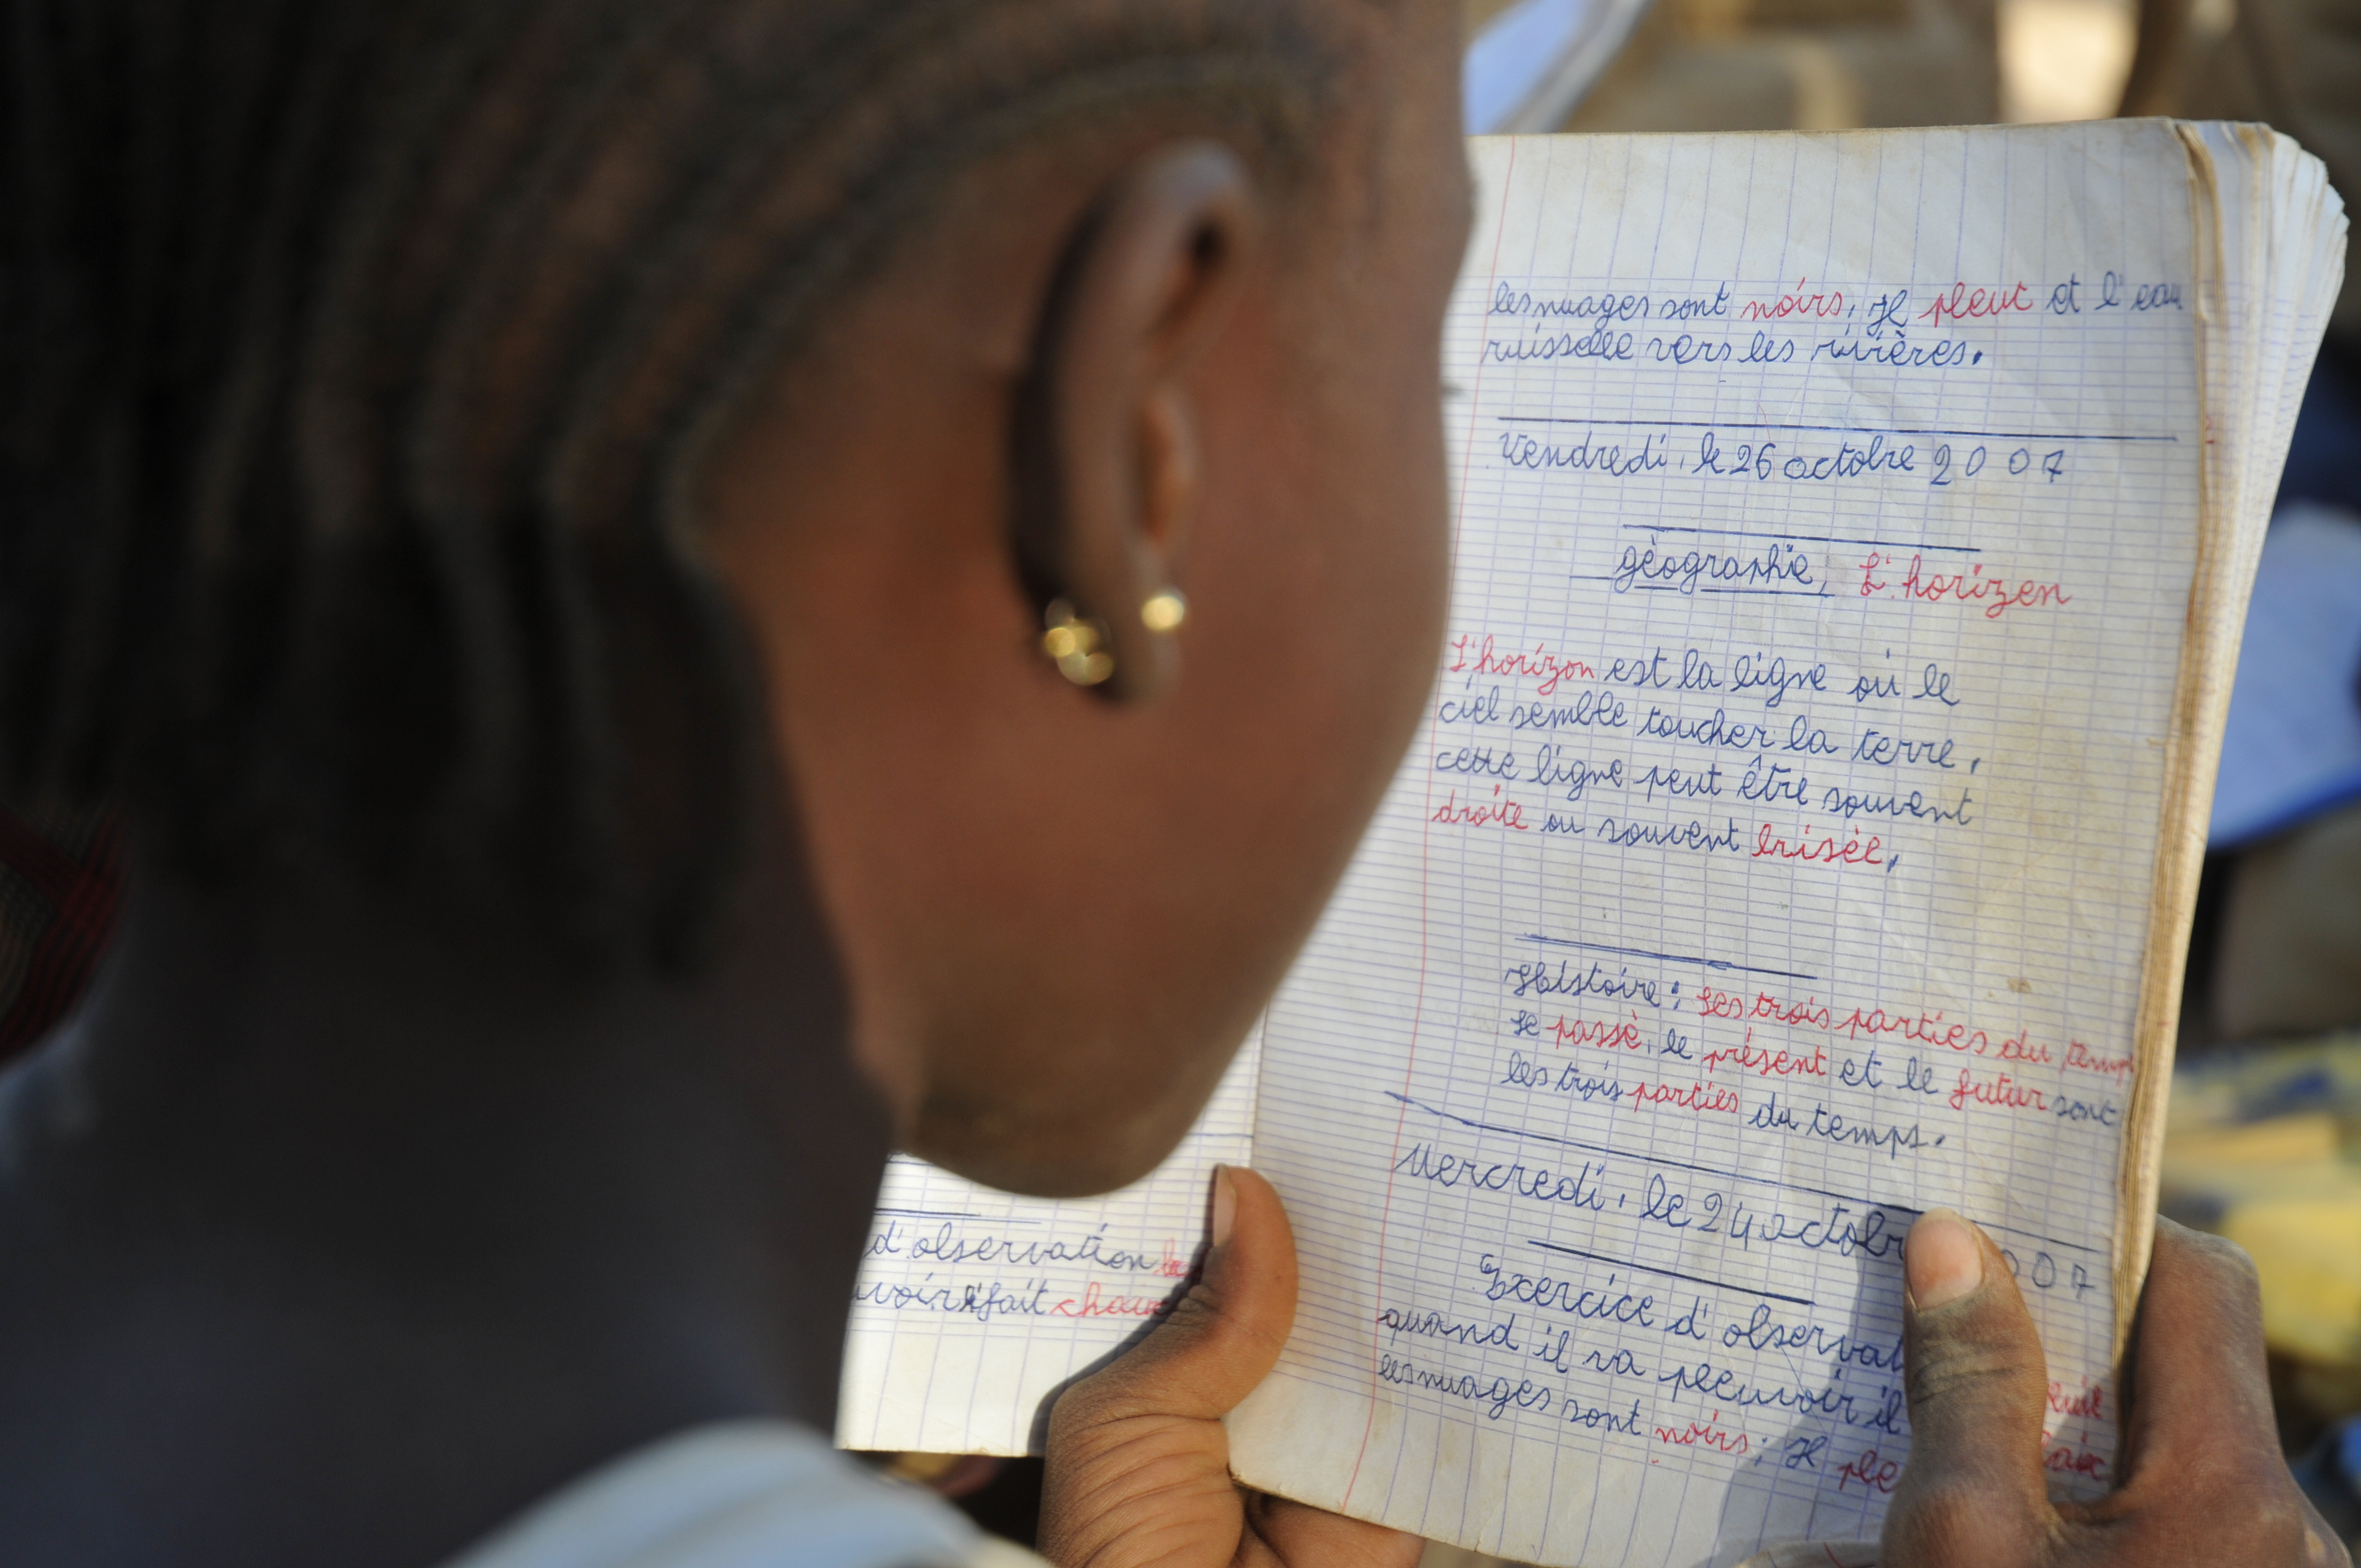 les nuages sont noirs; Il pleut et l'eau
ruisselle vers les rivières.
Vendredi, le 26 octobre 2007
gèographie; L'horizen
L'horizon est la ligne où le
ciel semble toucher la terre,
cette ligne peut être souvent
droite ou souvent brisée,
Histoire: Les trois parties du temps
Le passè, le présent et le futur sont
les trois parties du temps.
Mercredi, le 24 octobr 007
Exercice d'observat
quand il va pleuvoir il
les nuages sont noirs; Il ple
d'observation
uvoir fait chau